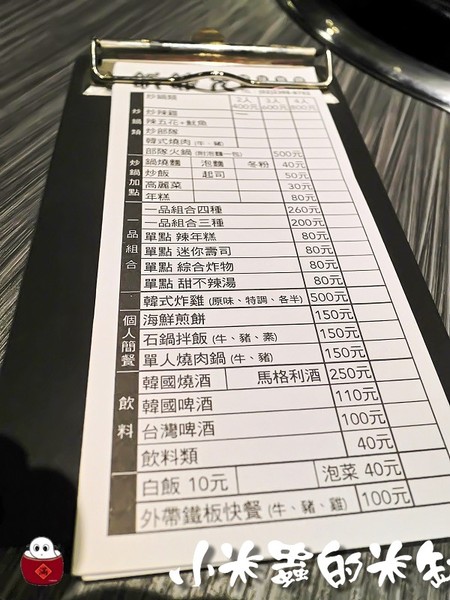 炒鍋類 2人 400元 3人 600元 4人 800元
炒鍋類
炒辣雞
辣五花+魷魚
炒部隊
韓式燒肉 (牛、豬)
部隊火鍋 (附泡麵一包) 500元
炒鍋加點
鍋燒麵 泡麵 冬粉 40元
炒飯 起司 50元
高麗菜 30元
年糕 80元
一品組合
一品組合四種 260元
一品組合三種 200元
單點 辣年糕 80元
單點 迷你壽司 80元
單點 綜合炸物 80元
單點 甜不辣湯 80元
韓式炸雞 (原味、特調、各半) 500元
個人簡餐
海鮮煎餅 150元
石鍋拌飯 (牛、豬、素) 150元
單人燒肉鍋 (牛、豬) 150元
飲料
韓國燒酒 馬格利酒 250元
韓國啤酒 110元
台灣啤酒 100元
飲料類 40元
白飯 10元 泡菜 40元
外帶鐵板快餐 (牛、豬、雞) 100元
小米蟲的米缸